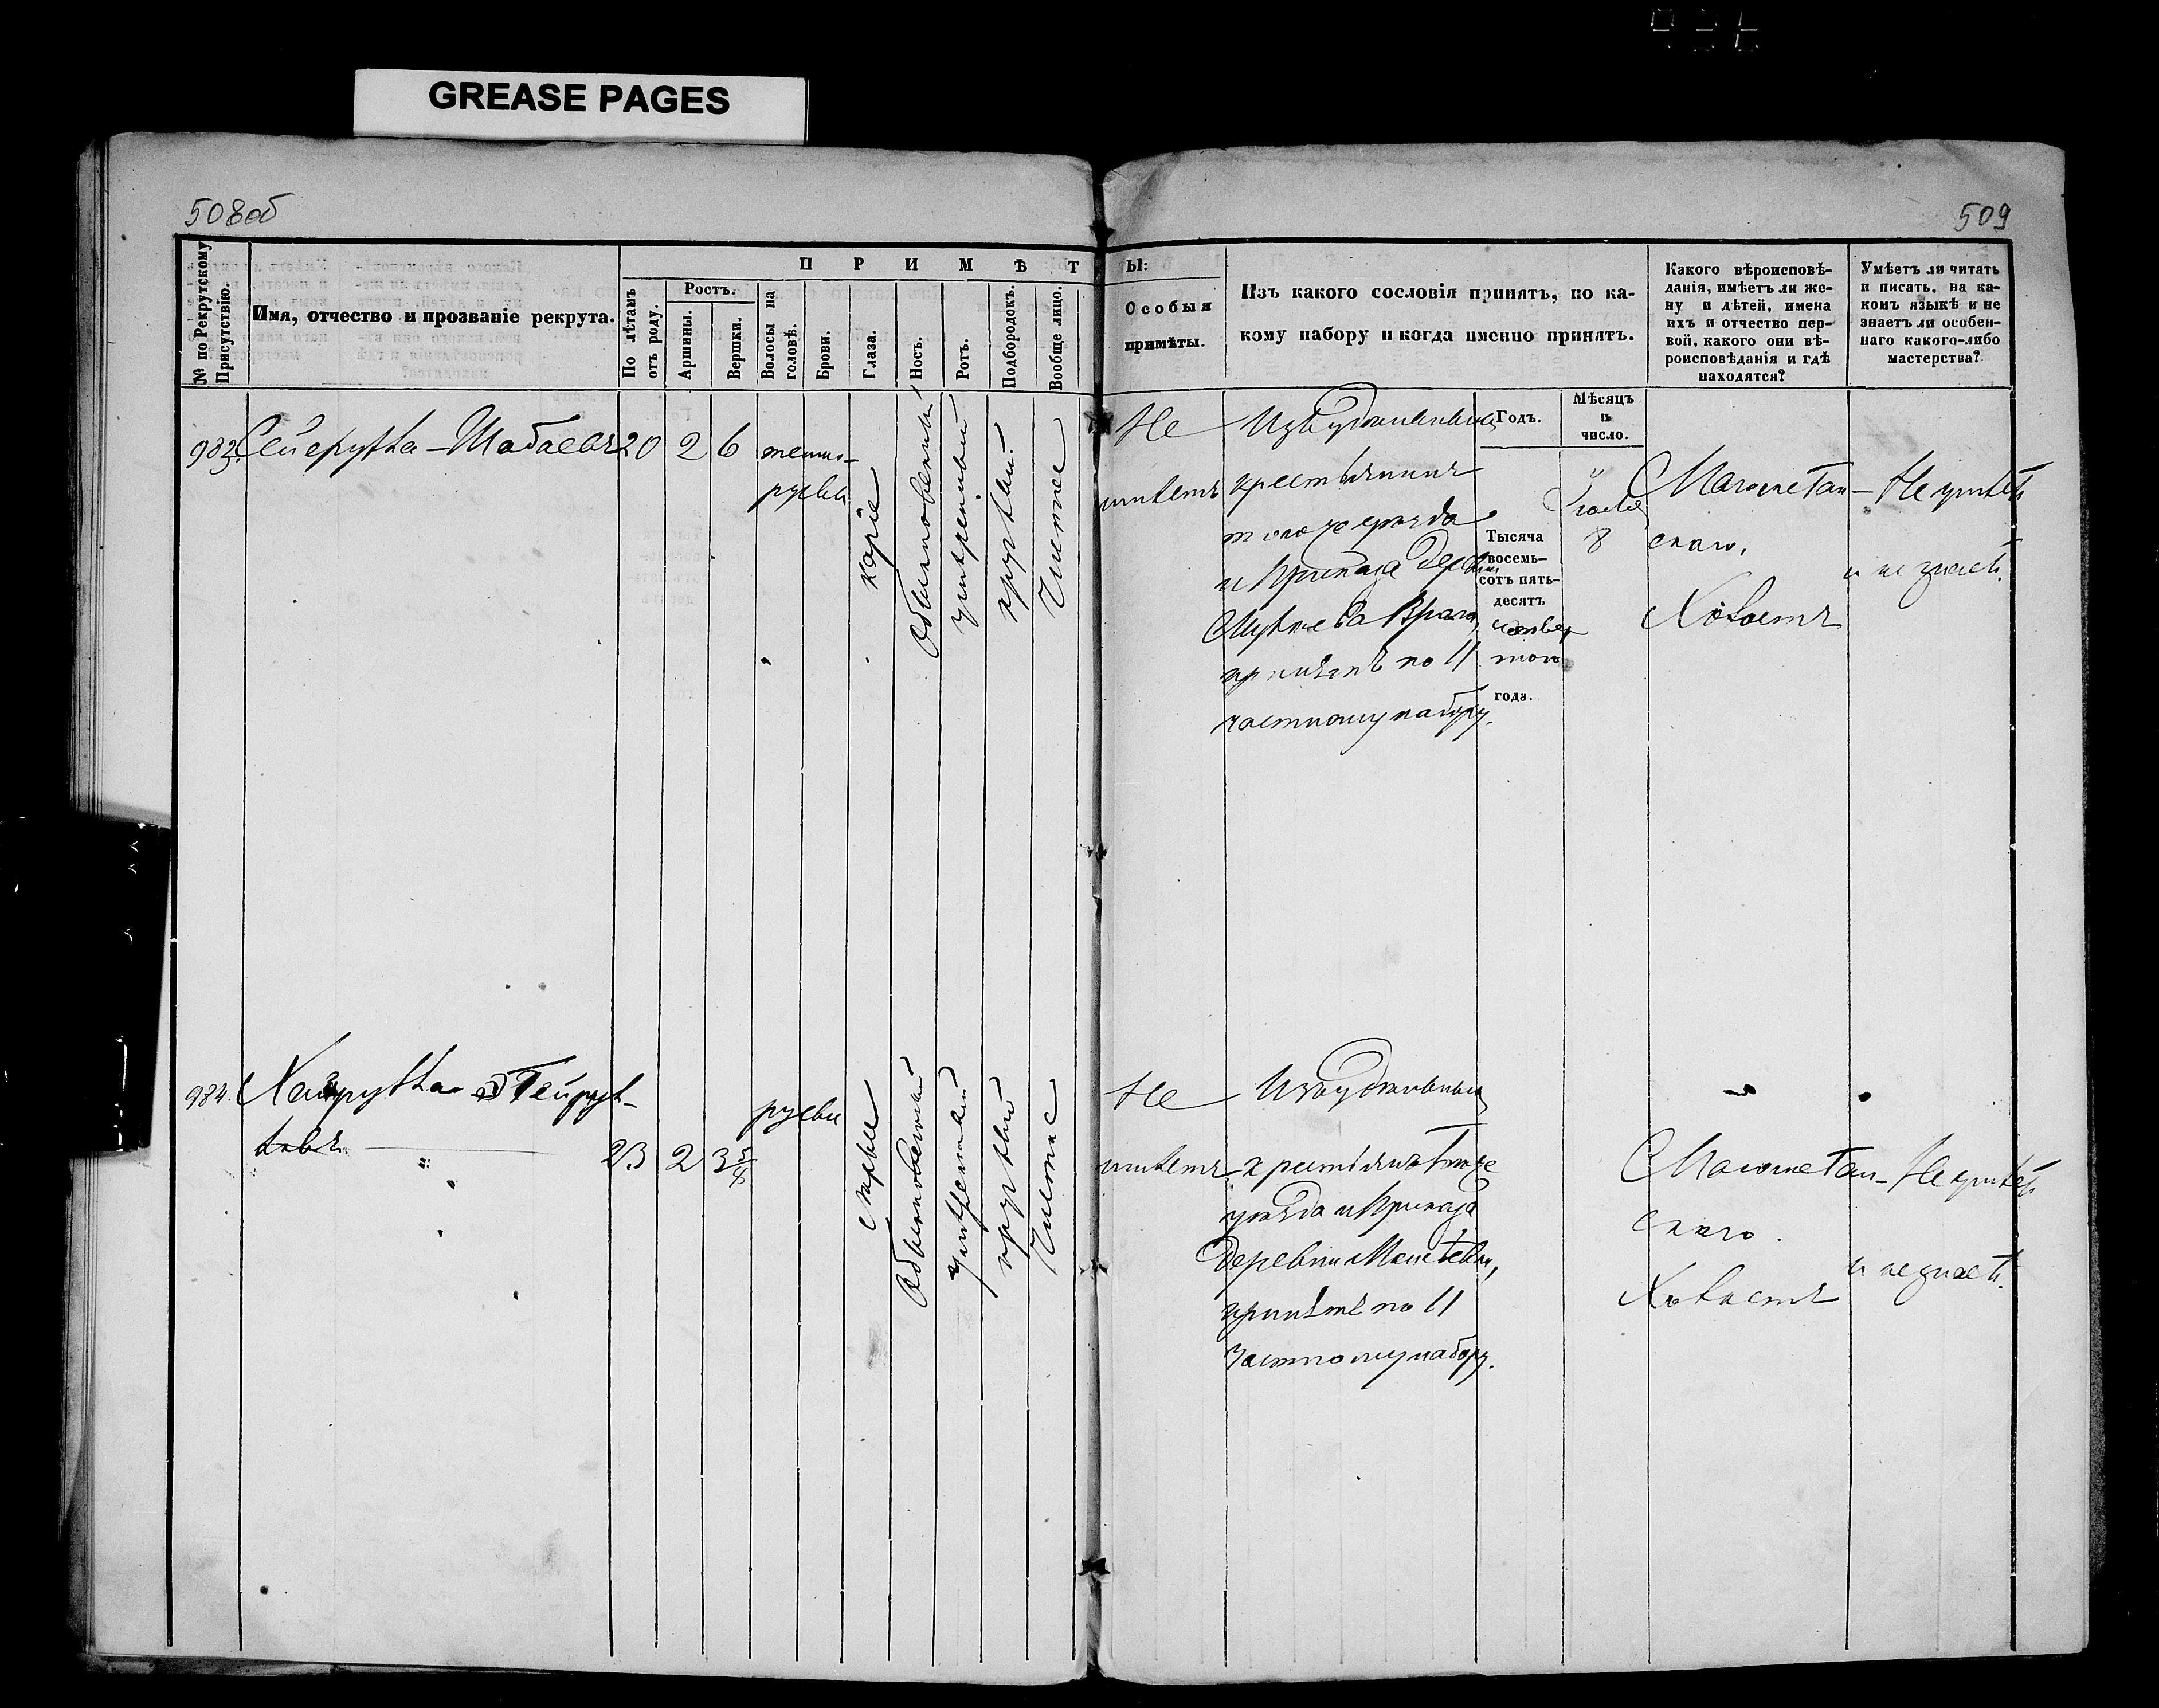 GREASE PAGES
508об
509
№ по Рекрутскому Присутствію.
Имя, отчество и прозваніе рекрута.
По лѣтамъ отъ роду.
ПРИМѢТ
Ростъ.
Аршины.
Вершки.
Волосы на головѣ.
Брови.
Глаза.
Носъ.
Ротъ.
Подбородокъ.
Вообще лицо.
Ы:
Особыя
примѣты.
Изъ какого сословія принятъ, по ка-
кому набору и когда именно принятъ.
Какого вѣроисповѣ-
данія, имѣетъ ли же-
ну и дѣтей, имена
ихъ и отчество пер-
вой, какого они вѣ-
роисповѣданія и гдѣ
находятся?
Умѣетъ ли читать
и писать, на ка-
комъ языкѣ и не
знаетъ ли особен-
наго какого-либо
мастерства?
Годъ.
Мѣсяцъ
и
число.
983. Сейфулла Шабаевъ 20 2 6 темно-
русые
каріе
обыкновенный
умѣренный
круглый
Чистое
Не
имѣетъ
Изъ удѣльныхъ
крестьянинъ
того же уѣзда
и Приказа дерев
Врага,
принятъ по 11
частному набору.
Тысяча
восемь-
сотъ пять-
десятъ
четвер
того
года.
8
Магометан-
скаго,
Холостъ
Не умѣетъ
и не знаетъ.
984. Хайрулла
23 2 3 3/4
русые
сѣрые
обыкновенный
умѣренный
круглый
Чистое
Не
имѣетъ
Изъ удѣльныхъ
крестьянъ того же
уѣзда и Приказа
деревни
принятъ по 11
частному набору.
Магометан-
скаго.
Холостъ
Не умѣетъ
и не знаетъ.